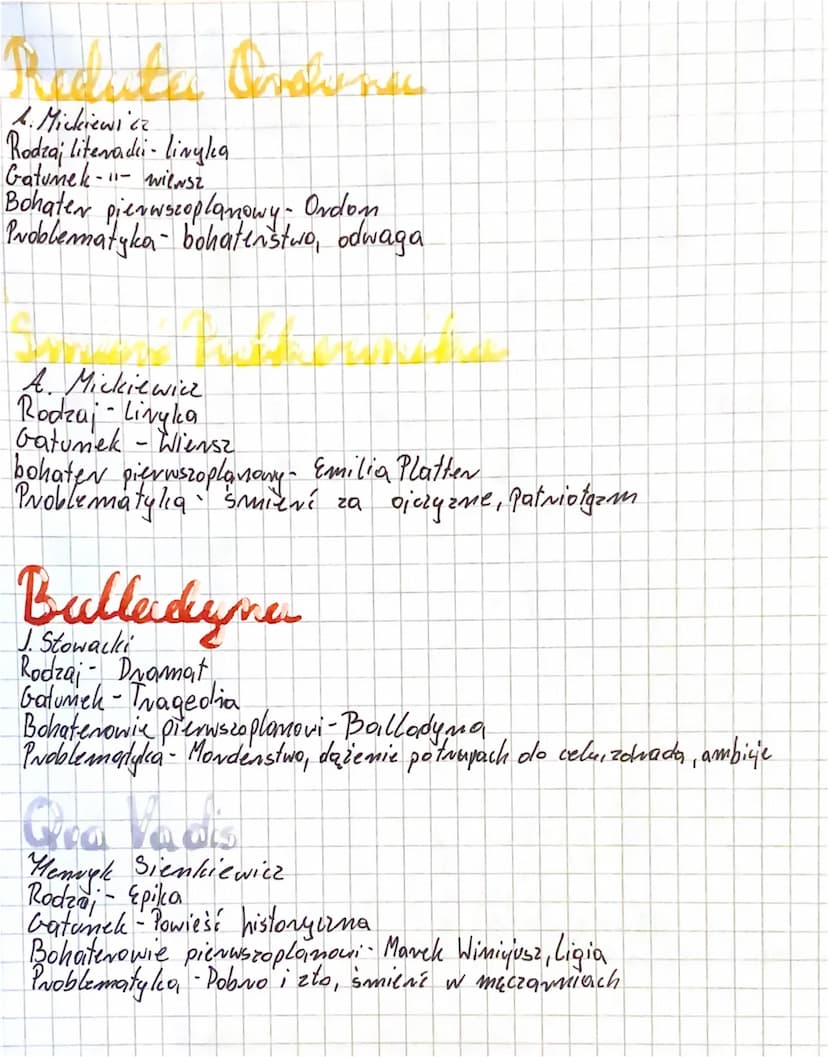 Reduta Ordona
A. Mickiewicz
Rodzaj literacki - liryka
Gatunek -"- wiersz
Bohater pierwszoplanowy - Ordon
Problematyka - bohaterstwo, odwaga
Śmierć Pułkownika
A. Mickiewicz
Rodzaj - Liryka
Gatunek - Wiersz
bohater pierwszoplanowy - Emilia Platter
Problematyka - śmierć za ojczyznę, patriotyzm
Balladyna
J. Słowacki
Rodzaj - Dramat
Gatunek - Tragedia
Bohaterowie pierwszoplanowi - Balladyna
Problematyka - Morderstwo, dążenie po trupach do celu, zdrada, ambicje
Quo Vadis
Henryk Sienkiewicz
Rodzaj - Epika
Gatunek - Powieść historyczna
Bohaterowie pierwszoplanowi - Marek Winicjusz, Ligia
Problematyka - Dobro i zło, śmierć w męczarniach